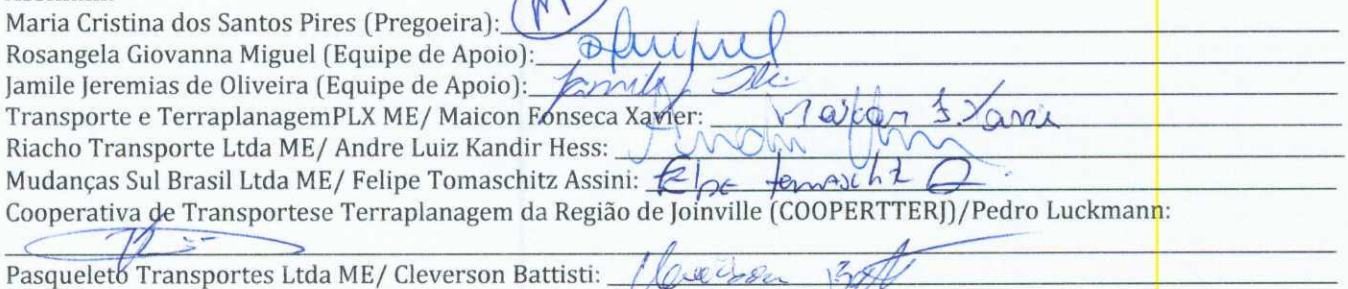 Maria Cristina dos Santos Pires (Pregoeira):
Rosangela Giovanna Miguel (Equipe de Apoio):
Jamile Jeremias de Oliveira (Equipe de Apoio):
Transporte e TerraplanagemPLX ME/ Maicon Fonseca Xavier:
Riacho Transporte Ltda ME/ Andre Luiz Kandir Hess:
Mudanças Sul Brasil Ltda ME/ Felipe Tomaschitz Assini: Felipe Tomaschitz
Cooperativa de Transportese Terraplanagem da Região de Joinville (COOPERTTERJ)/Pedro Luckmann:
Pasqueleto Transportes Ltda ME/ Cleverson Battisti: Cleverson